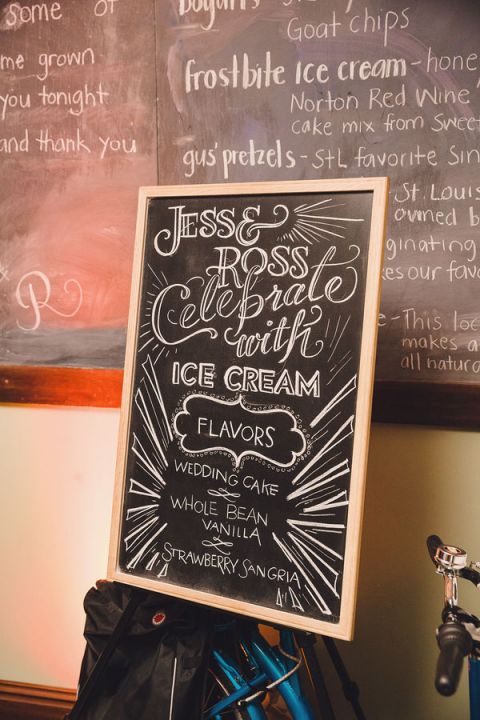 some of
me grown
you tonight
and thank you
R
Goat chips
frostbite ice cream - honey
Norton Red Wine
cake mix from Sweet
gus' pretzels - StL favorite
St. Louis
owned b
ginating
kes our fav
This loc
makes a
all natura
JESS &
ROSS
Celebrate
with
ICE CREAM
FLAVORS
WEDDING CAKE
WHOLE BEAN
VANILLA
STRAWBERRY SANGRIA